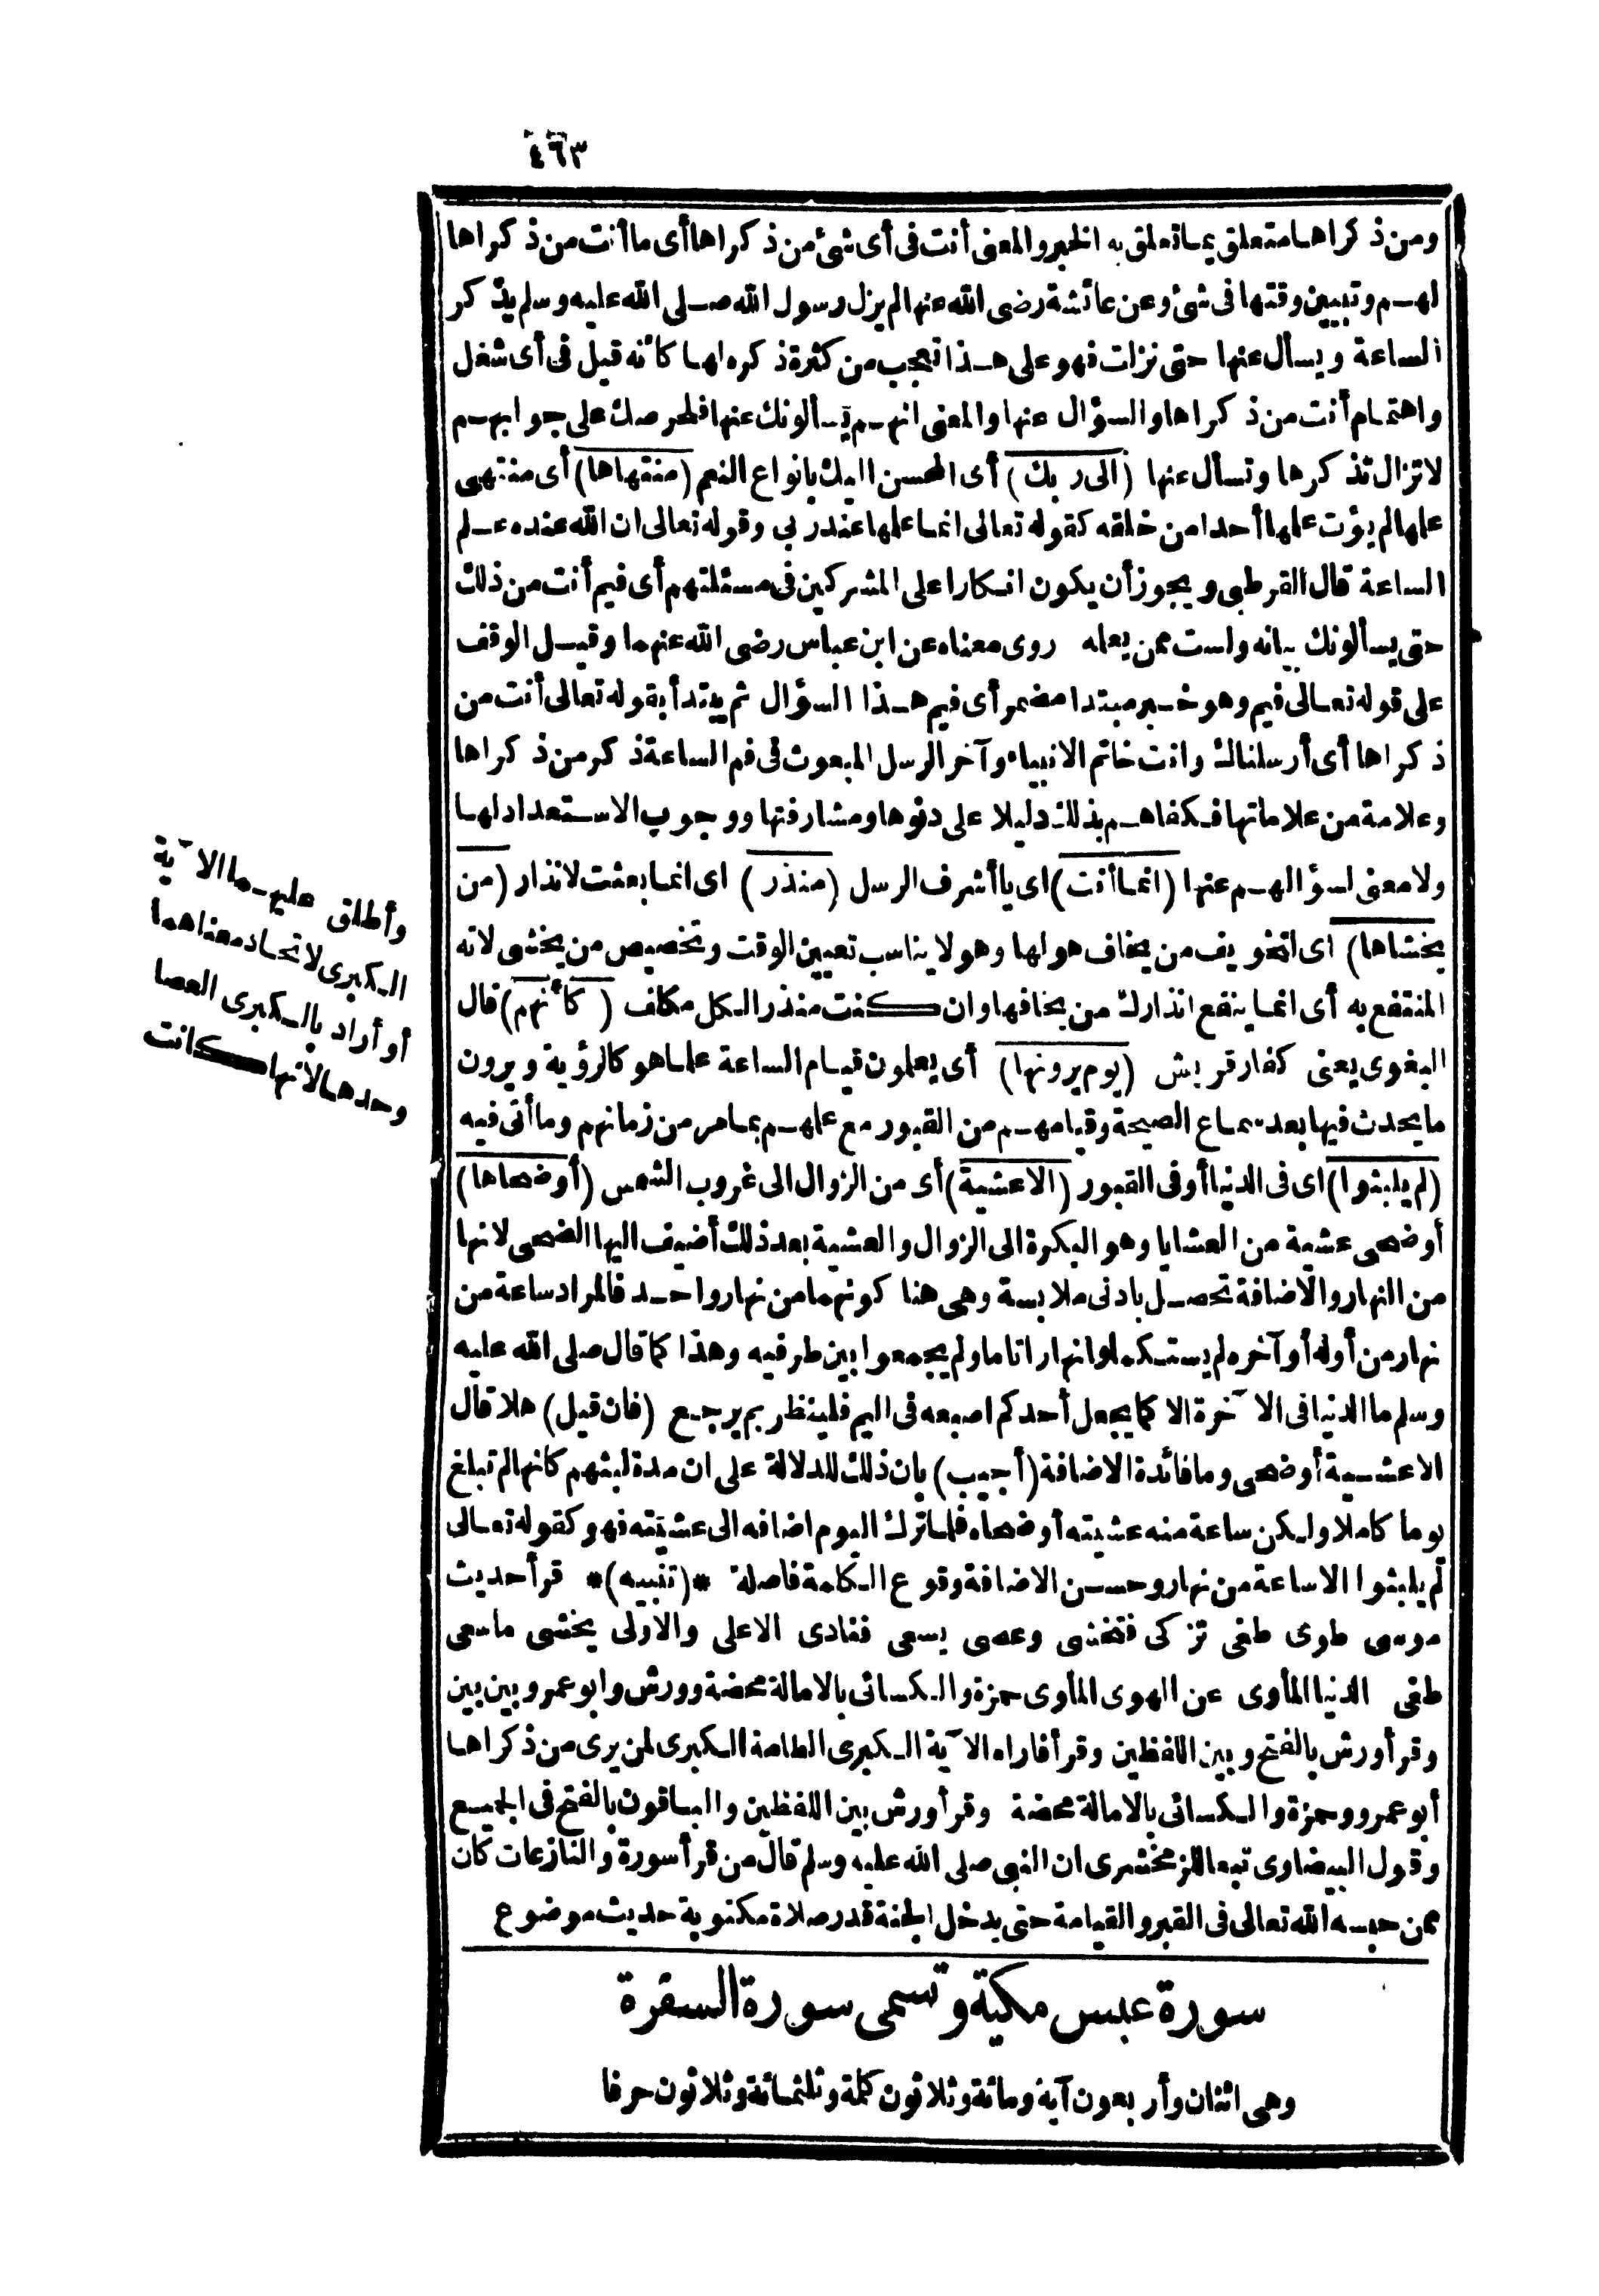 ٤٦٣
ومن ذكراها متعلق بما تعلق به الخبر والمعنى أنت فى أى شئ من ذكراها أى ما أنت من ذكراها
لهم وتبيين وقتها فى شئ وعن عائشة رضى الله عنها لم يزل رسول الله صلى الله عليه وسلم يذكر
الساعة ويسأل عنها حتى نزلت فهو على هذا تعجب من كثرة ذكره لها كأنه قيل فى أى شغل
واهتمام أنت من ذكراها والسؤال عنها والمعنى انهم يسألونك عنها فلحرصك على جوابهم
لا تزال تذكرها وتسأل عنها (الى ربك) أى المحسن اليك بانواع النعم (منتهاها) أى منتهى
علمها لم يؤت علمها أحدا من خلقه كقوله تعالى انما علمها عند ربى وقوله تعالى ان الله عنده علم
الساعة قال القرطبى ويجوز أن يكون انكارا على المشركين فى مسئلتهم أى فيم أنت من ذلك
حتى يسألونك بيانه ولست ممن يعلمه روى معناه عن ابن عباس رضى الله عنهما وقيل الوقف
على قوله تعالى فيم وهو خبر مبتدا مضمر أى فيم هذا السؤال ثم يبتدأ بقوله تعالى أنت من
ذكراها أى أرسلناك وانت خاتم الانبياء وآخر الرسل المبعوث فى فم الساعة ذكر من ذكراها
وعلامة من علاماتها فكفاهم بذلك دليلا على دنوها ومشارفتها ووجوب الاستعداد لها
ولا معنى لسؤالهم عنها (انما أنت) اى يا أشرف الرسل (منذر) اى انما بعثت لانذار (من
يخشاها) اى لتخويف من يخاف هولها وهو لا يناسب تعيين الوقت وتخصيص من يخشى لانه
المنتفع به أى انما ينفع انذارك من يخافها وان كنت منذر الكل مكلف (كأنهم) قال
البغوى يعنى كفار قريش (يوم يرونها) أى يعلمون قيام الساعة علما هو كالرؤية ويرون
ما يحدث فيها بعد سماع الصيحة وقيامهم من القبور مع علمهم بما مر من زمانهم وما أتى فيه
(لم يلبثوا) اى فى الدنيا أو فى القبور (الا عشية) أى من الزوال الى غروب الشمس (أو ضحاها)
أو ضحى عشية من العشايا وهو البكرة الى الزوال والعشية بعد ذلك أضيف اليها الضحى لانها
من النهار والاضافة تحصل بادنى ملابسة وهى هنا كونهما من نهار واحد فالمراد ساعة من
نهار من أوله أو آخره لم يستكملوا نهارا تاما ولم يجمعوا بين طرفيه وهذا كما قال صلى الله عليه
وسلم ما الدنيا فى الآخرة الا كما يجعل أحدكم اصبعه فى اليم فلينظر بم يرجع (فان قيل) هلا قال
الا عشية أو ضحى وما فائدة الاضافة (أجيب) بان ذلك للدلالة على ان مدة لبثهم كانها لم تبلغ
يوما كاملا ولكن ساعة منه عشيته أو ضحاه فلما ترك اليوم اضافه الى عشيته فهو كقوله تعالى
لم يلبثوا الا ساعة من نهار وحسن الاضافة وقوع الكلمة فاصلة *(تنبيه)* قرأ حديث
موسى طوى طغى تزكى فتخشى وعصى يسعى فنادى الاعلى والاولى يخشى ما سعى
طغى الدنيا المأوى عن الهوى المأوى حمزة والكسائى بالامالة محضة وورش وابو عمرو بين بين
وقرأ ورش بالفتح وبين اللفظين وقرأ فاراه الآية الكبرى الطامة الكبرى لمن يرى من ذكراها
أبو عمرو وحمزة والكسائى بالامالة محضة وقرأ ورش بين اللفظين والباقون بالفتح فى الجميع
وقول البيضاوى تبعا للزمخشرى ان النبى صلى الله عليه وسلم قال من قرأ سورة والنازعات كان
ممن حبسه الله تعالى فى القبر والقيامة حتى يدخل الجنة قدر صلاة مكتوبة حديث موضوع
سورة عبس مكية وتسمى سورة السفرة
وهى اثنان وأربعون آية ومائة وثلاثون كلمة وثلثمائة وثلاثون حرفا
وأطلق عليهما الآية
الكبرى لاتحاد معناهما
أو أراد بالكبرى العصا
وحدها لانها كانت